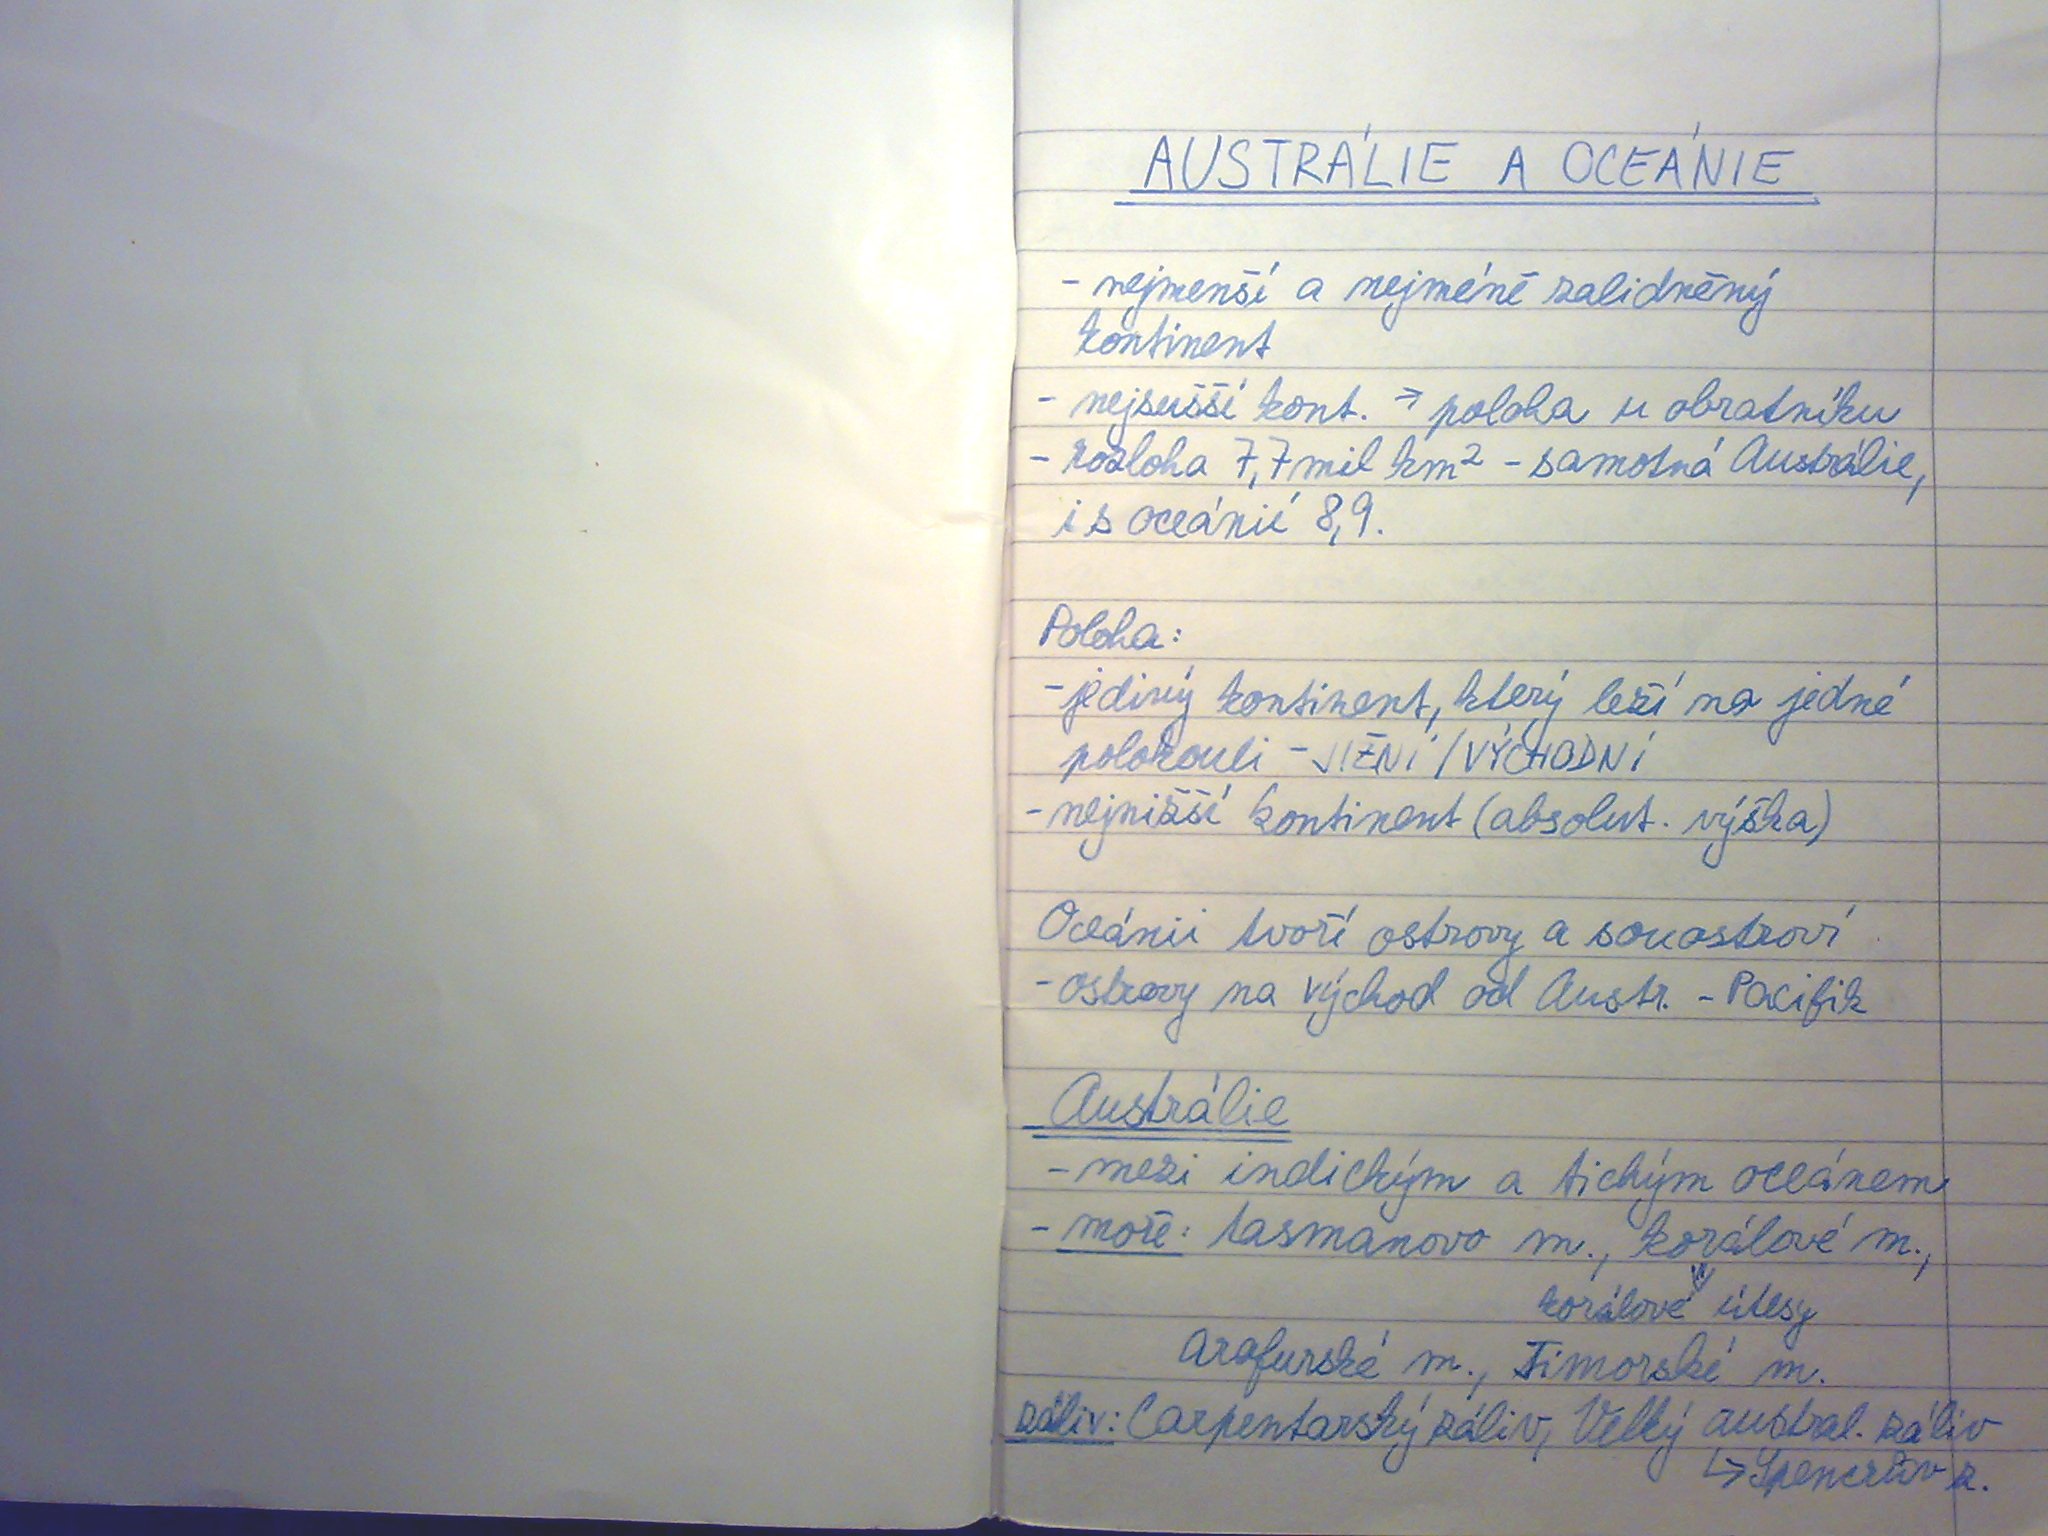 AUSTRÁLIE A OCEÁNIE
- nejmenší a nejméně zalidněný
kontinent
- nejsušší kont. → poloha u obratníku
- rozloha 7,7 mil km² - samotná Austrálie,
i s oceánií 8,9.
Poloha:
- jediný kontinent, který leží na jedné
polokouli - JIŽNÍ / VÝCHODNÍ
- nejnižší kontinent (absolut. výška)
Oceánii tvoří ostrovy a souostroví
- ostrovy na východ od Austr. - Pacifik
Austrálie
- mezi indickým a tichým oceánem
- moře: tasmanovo m., korálové m.,
korálové útesy
Arafurské m., Timorské m.
záliv: Carpentarský záliv, Velký austral. záliv
↳ Spencrův z.